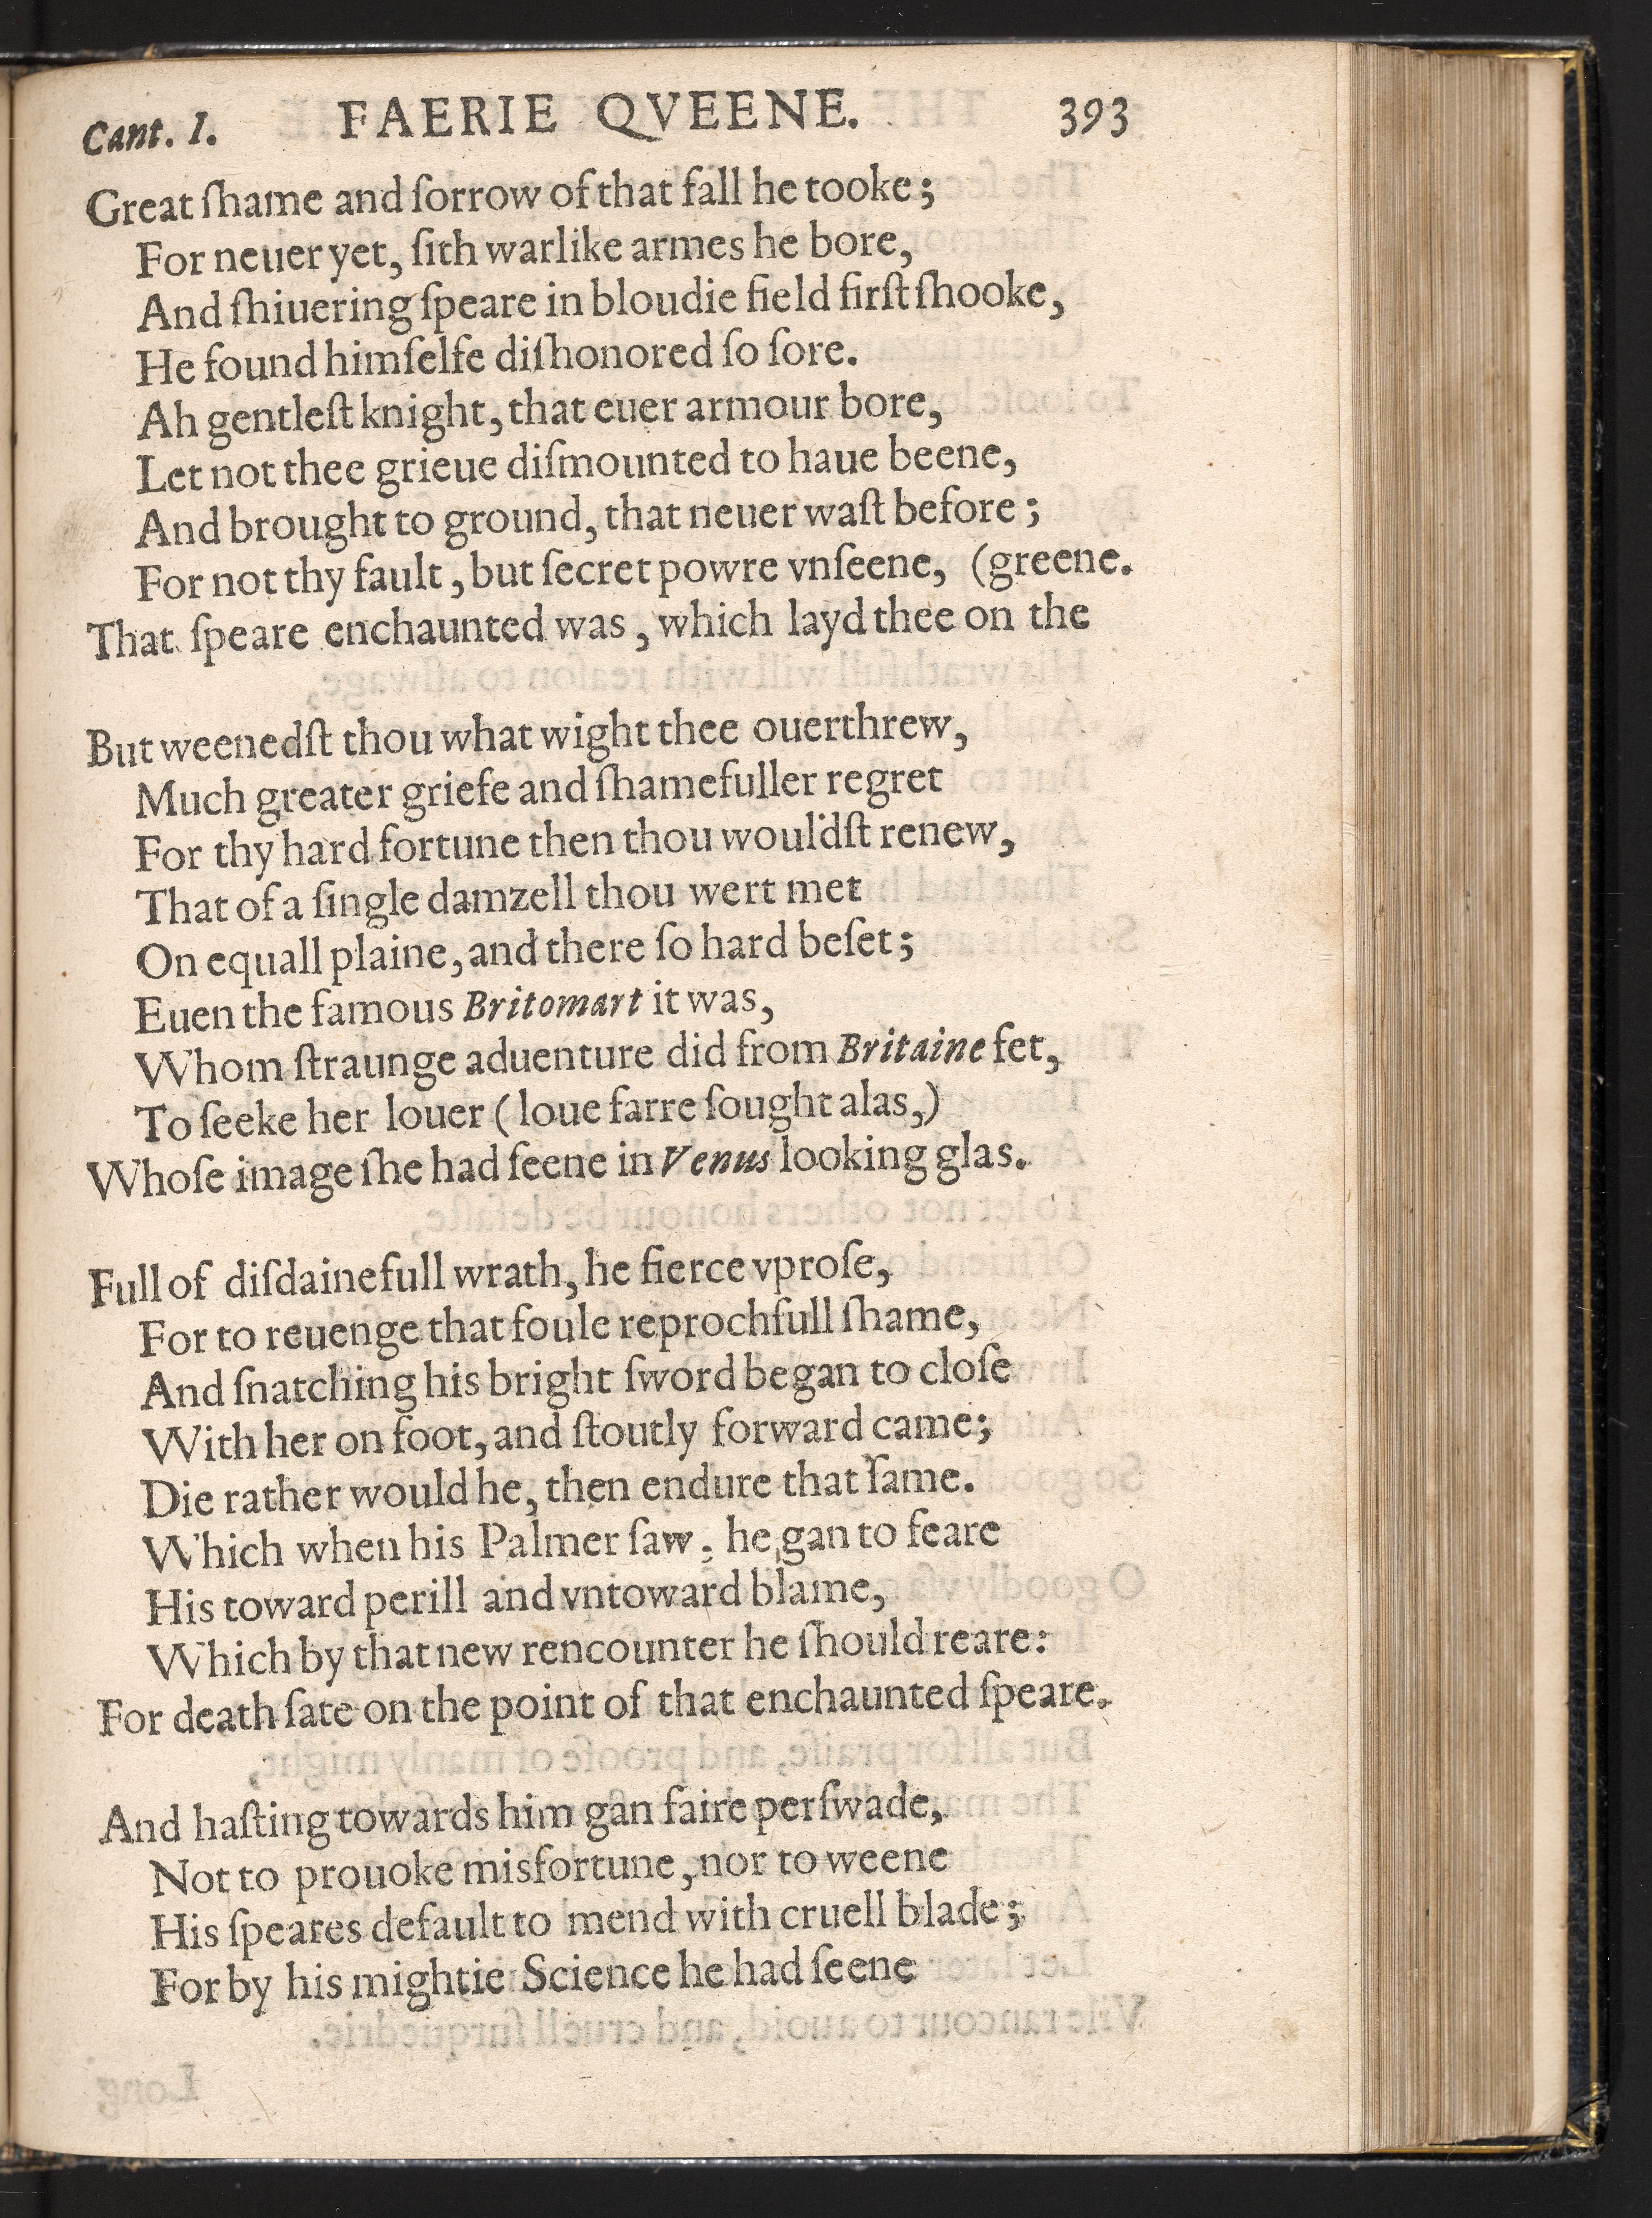 Cant. I. FAERIE QVEENE. 393
Great ſhame and ſorrow of that fall he tooke;
For neuer yet, ſith warlike armes he bore,
And ſhiuering ſpeare in bloudie field firſt ſhooke,
He found himſelfe diſhonored ſo ſore.
Ah gentleſt knight, that euer armour bore,
Let not thee grieue diſmounted to haue beene,
And brought to ground, that neuer waſt before;
For not thy fault, but ſecret powre vnſeene, (greene.
That ſpeare enchaunted was, which layd thee on the
But weenedſt thou what wight thee ouerthrew,
Much greater griefe and ſhamefuller regret
For thy hard fortune then thou wouldſt renew,
That of a ſingle damzell thou wert met
On equall plaine, and there ſo hard beſet;
Euen the famous Britomart it was,
Whom ſtraunge aduenture did from Britaine fet,
To ſeeke her louer (loue farre ſought alas,)
Whoſe image ſhe had ſeene in Venus looking glas.
Full of diſdainefull wrath, he fierce vproſe,
For to reuenge that foule reprochfull ſhame,
And ſnatching his bright ſword began to cloſe
With her on foot, and ſtoutly forward came;
Die rather would he, then endure that ſame.
Which when his Palmer ſaw, he gan to feare
His toward perill and vntoward blame,
Which by that new rencounter he ſhould reare:
For death ſate on the point of that enchaunted ſpeare.
And haſting towards him gan faire perſwade,
Not to prouoke misfortune, nor to weene
His ſpeares default to mend with cruell blade;
For by his mightie Science he had ſeene